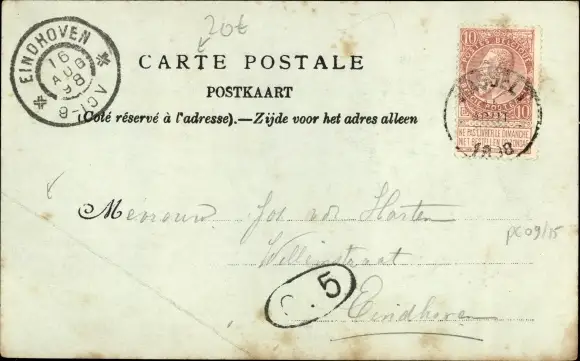 20€
EINDHOVEN
16
AUG
98
8-10V
CARTE POSTALE
POSTKAART
(Coté réservé à l'adresse).—Zijde voor het adres alleen
10 POSTES BELGIQUE
10 10
NE PAS LIVRER LE DIMANCHE
NIET BESTELLEN OP ZONDAG
1898
Mevrouw Jos vd Harten
Willemstraat
Eindhoven
5
pc09/15